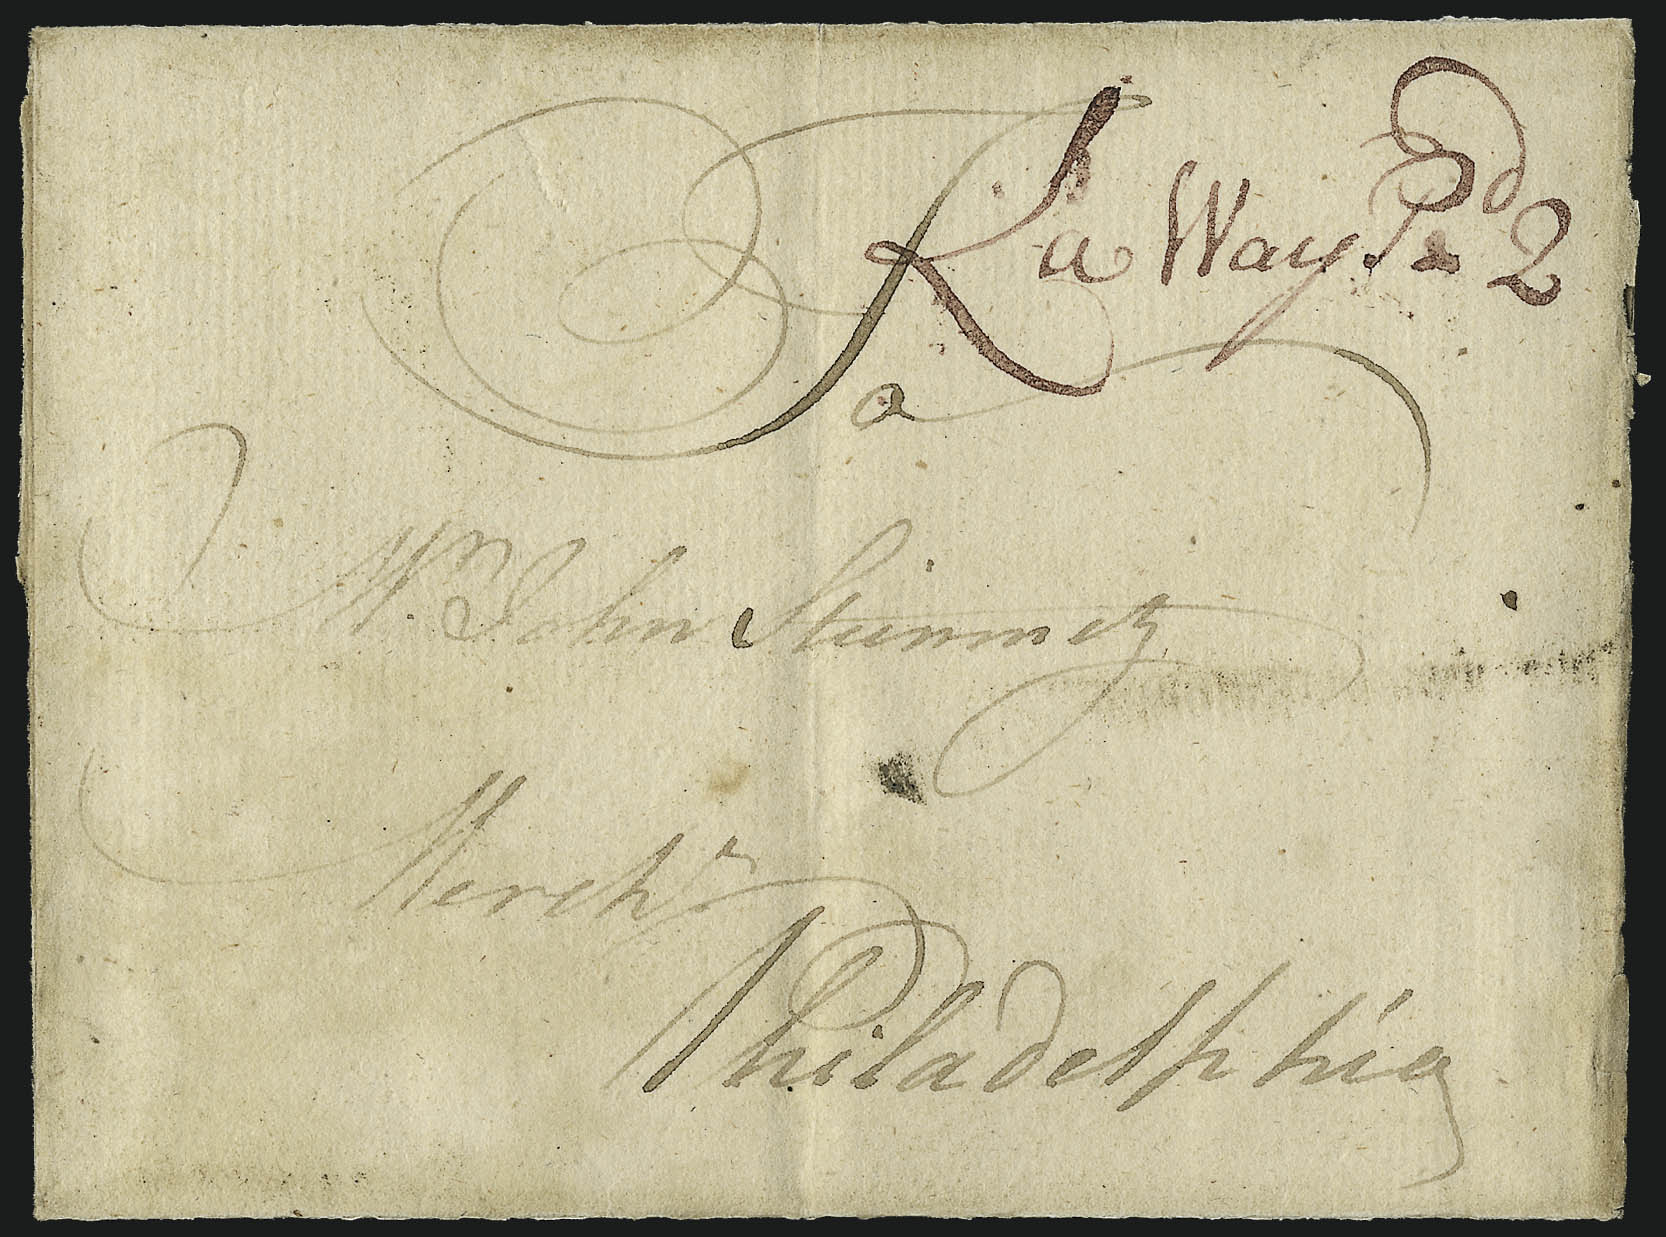 La Way Pd 2
To
Mr. John Steinmetz
Merch.t
Philadelphia